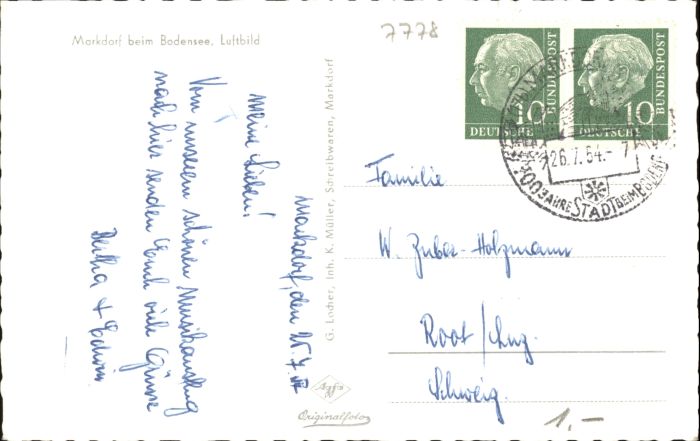 Markdorf beim Bodensee, Luftbild
7778
Markdorf, den 25.7.
Meine Lieben!
Vom unserem schönen Musikausflug
nach hier senden Euch viele Grüsse
Bertha + Edwin
G. Locher, Inh. K. Müller, Schreibwaren, Markdorf
Agfa
Originalfoto
10
DEUTSCHE
BUNDESPOST
10
DEUTSCHE
BUNDESPOST
26.7.64.- 7
700 JAHRE STADT BEIM BODENSEE
Familie
W. Zuber-Holzmann
Root/Luz.
Schweiz.
1.-